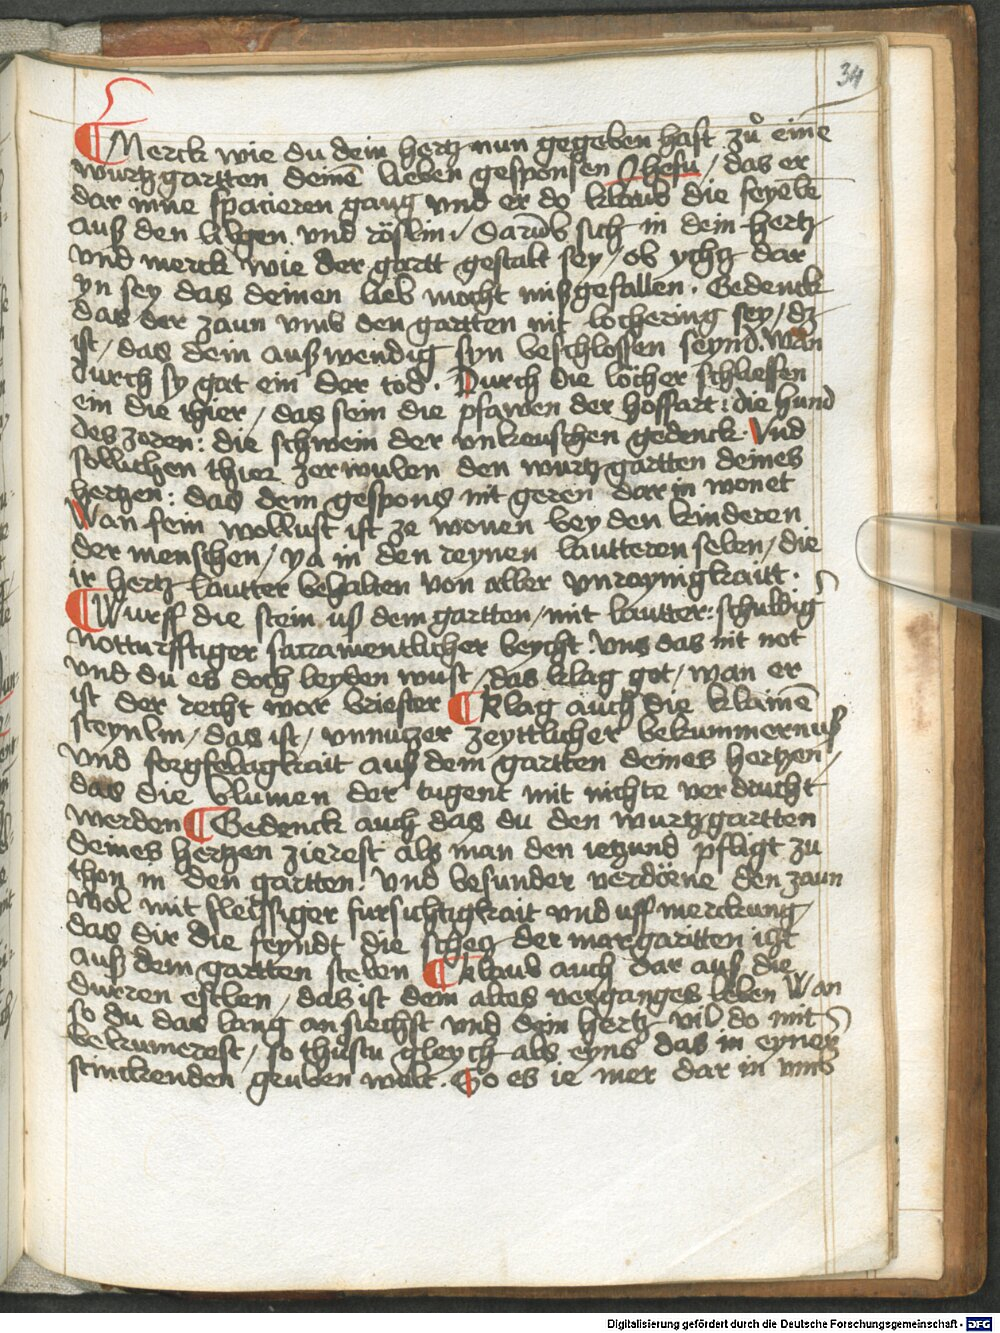 34
¶ Merck wie du dein hertz nun gegeben hast zů eine̅
wurtzgartten deine̅ lieben gesponsen Jhesu / das er
dar inne spacieren gang vnd er do klaub die feyele̅
auß den lilgen vnd röslin / Daru̅b sich in dein hertz
vnd merck wie der gartt gestalt sey / ob ychtz dar
yn sey das deinen lieb mocht mißgefallen . Gedenck
das der zaun vmb den gartten nit lochering sey / dz
ist / das dein außwendig syn beschlossen seynd. Wan
durch sy gat ein der tod . Durch die löcher schlieffen
ein die thier / das sein die pfawen der hoffart : die hund
des zoren : die schwein der vnkeuschen gedenck . Vnd
sollichen thier zerwulen den wurtzgartten deines
hertzen : das dein gespons nit geren dar in wonet
Wan sein wollust ist ze wonen bey den kinderen
der menschen / ya in den reynen lautteren selen / die
ir hertz lautter behalten von aller vnraynigkaitt .
¶ Wurff die stein uß dem gartten / mit lautter : schuldig
notturfftiger sacramentlicher beycht : vns das nit not
vnd du es doch leyden must / das klag got / wan er
ist der recht war briester ¶ Klag auch die klaine̅
steynlin / das ist / vnnutzer zeyttlicher bekummernuß
vnd sorgfelagkait auß dem gartten deines hertzen /
das die blumen der tugent mit nichte verdrucht
werden ¶ Gedenck auch das du den wurtzgartten
deines hertzen zierest als man den ietzund pfligt zu
thon in den gartten . Vnd besunder verdörne den zaun
wol mit fleissiger fursichtigkait vnd uff merckung /
das dir die feyndt die schetz der margaritten icht
auß dem gartten stelen ¶ Klaub auch dar auß die
durren estlen / das ist dein altes verganges leben Wan
so du das lang ansiechst vnd dein hertz vil do mit
bekumerest / so thustu gleych als eyns das in eyner
stinckenden gruben wult . So es ie mer dar in vmb
Digitalisierung gefördert durch die Deutsche Forschungsgemeinschaft - DFG